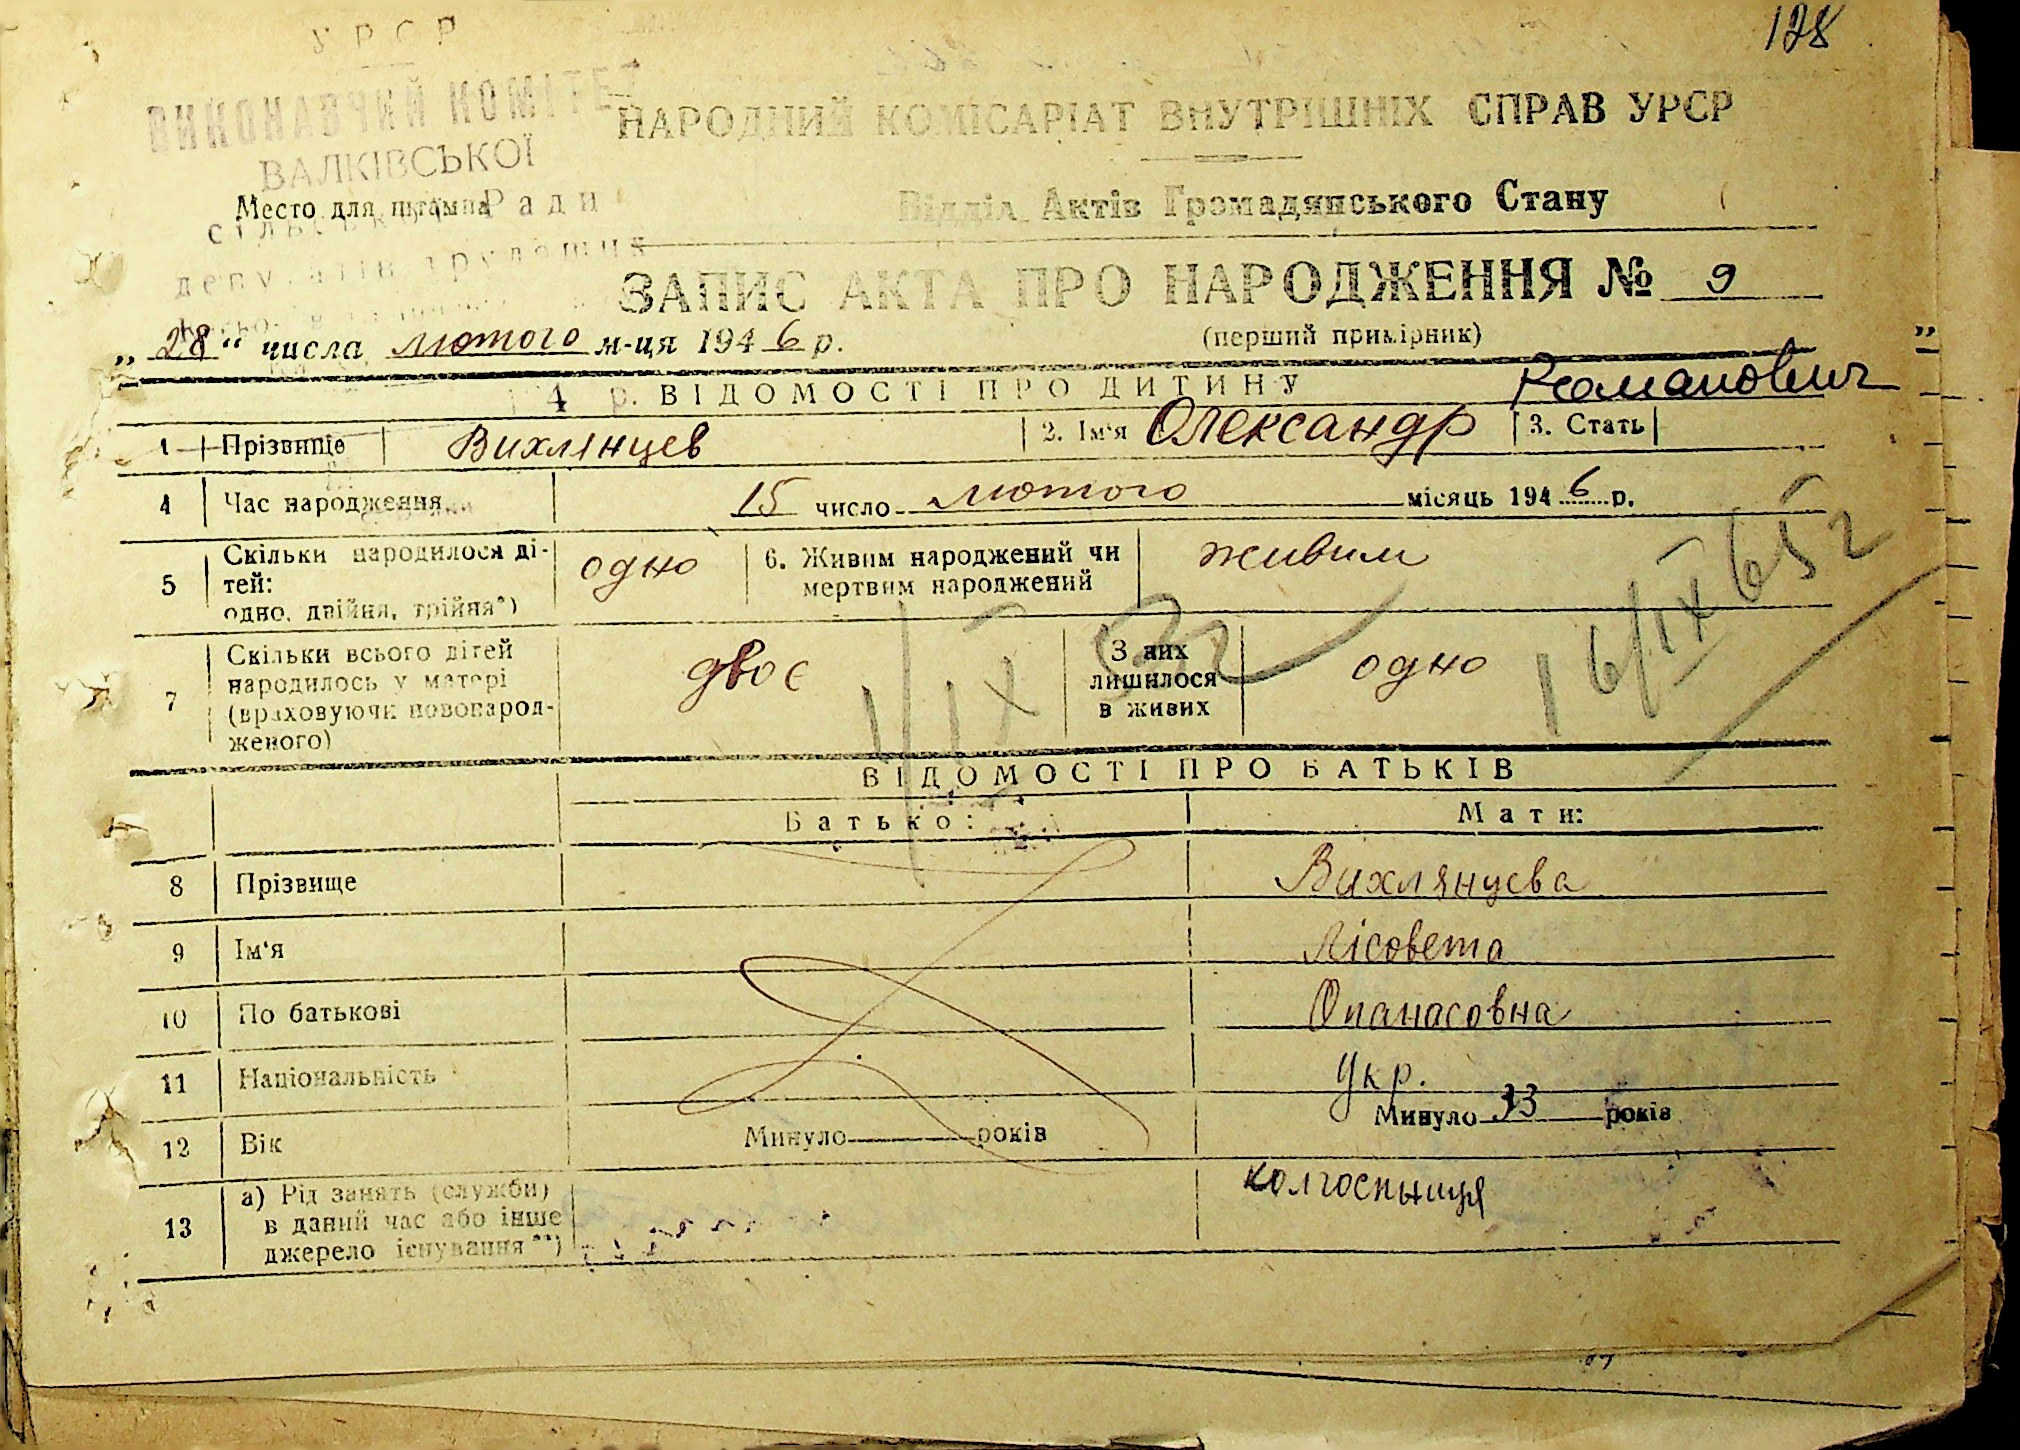 128
УРСР
ВИКОНАВЧИЙ КОМІТЕТ
ВАЛКІВСЬКОЇ
сільської Ради
депутатів трудящих
Место для штампа
НАРОДНИЙ КОМІСАРІАТ ВНУТРІШНІХ СПРАВ УРСР
Відділ Актів Громадянського Стану
ЗАПИС АКТА ПРО НАРОДЖЕННЯ № 9
(перший примірник)
„28“ числа лютого м-ця 1946 р.
4 р. ВІДОМОСТІ ПРО ДИТИНУ
Романович
1 Прізвище Вихлянцев 2. Ім'я Олександр 3. Стать
4 Час народження 15 число лютого місяць 1946 р.
5 Скільки народилося ді-
тей:
одно, двійня, трійня*)
одно
6. Живим народжений чи
мертвим народжений
живим
7 Скільки всього дітей
народилось у матері
(враховуючи новонарод-
женого)
двоє
З них
лишилося
в живих
одно
16/IX 65 г
ВІДОМОСТІ ПРО БАТЬКІВ
Батько: Мати:
8 Прізвище Вихлянцева
9 Ім'я Лісовета
10 По батькові Опанасовна
11 Національність Укр.
12 Вік Минуло років Минуло 33 років
13 а) Рід занять (служби)
в даний час або інше
джерело існування**)
колгоспниця